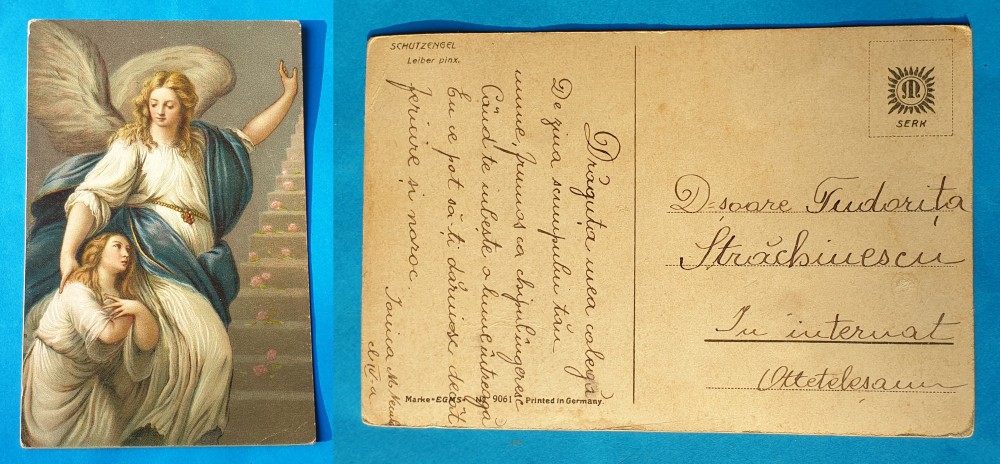 SCHUTZENGEL
Leiber pinx.
Drăguța mea colegă
De ziua scumpului tău
nume, frumos ca chipul îngeresc
Când te iubește o lume întreagă
Eu ce pot să-ți dăruiesc decât
fericire și noroc.
Ionica M.
Marke "EGMS" Nr. 9061 Printed in Germany.
M
SERK
D-șoare Tudorița
Străchinescu
În internat
Otteteleșanu